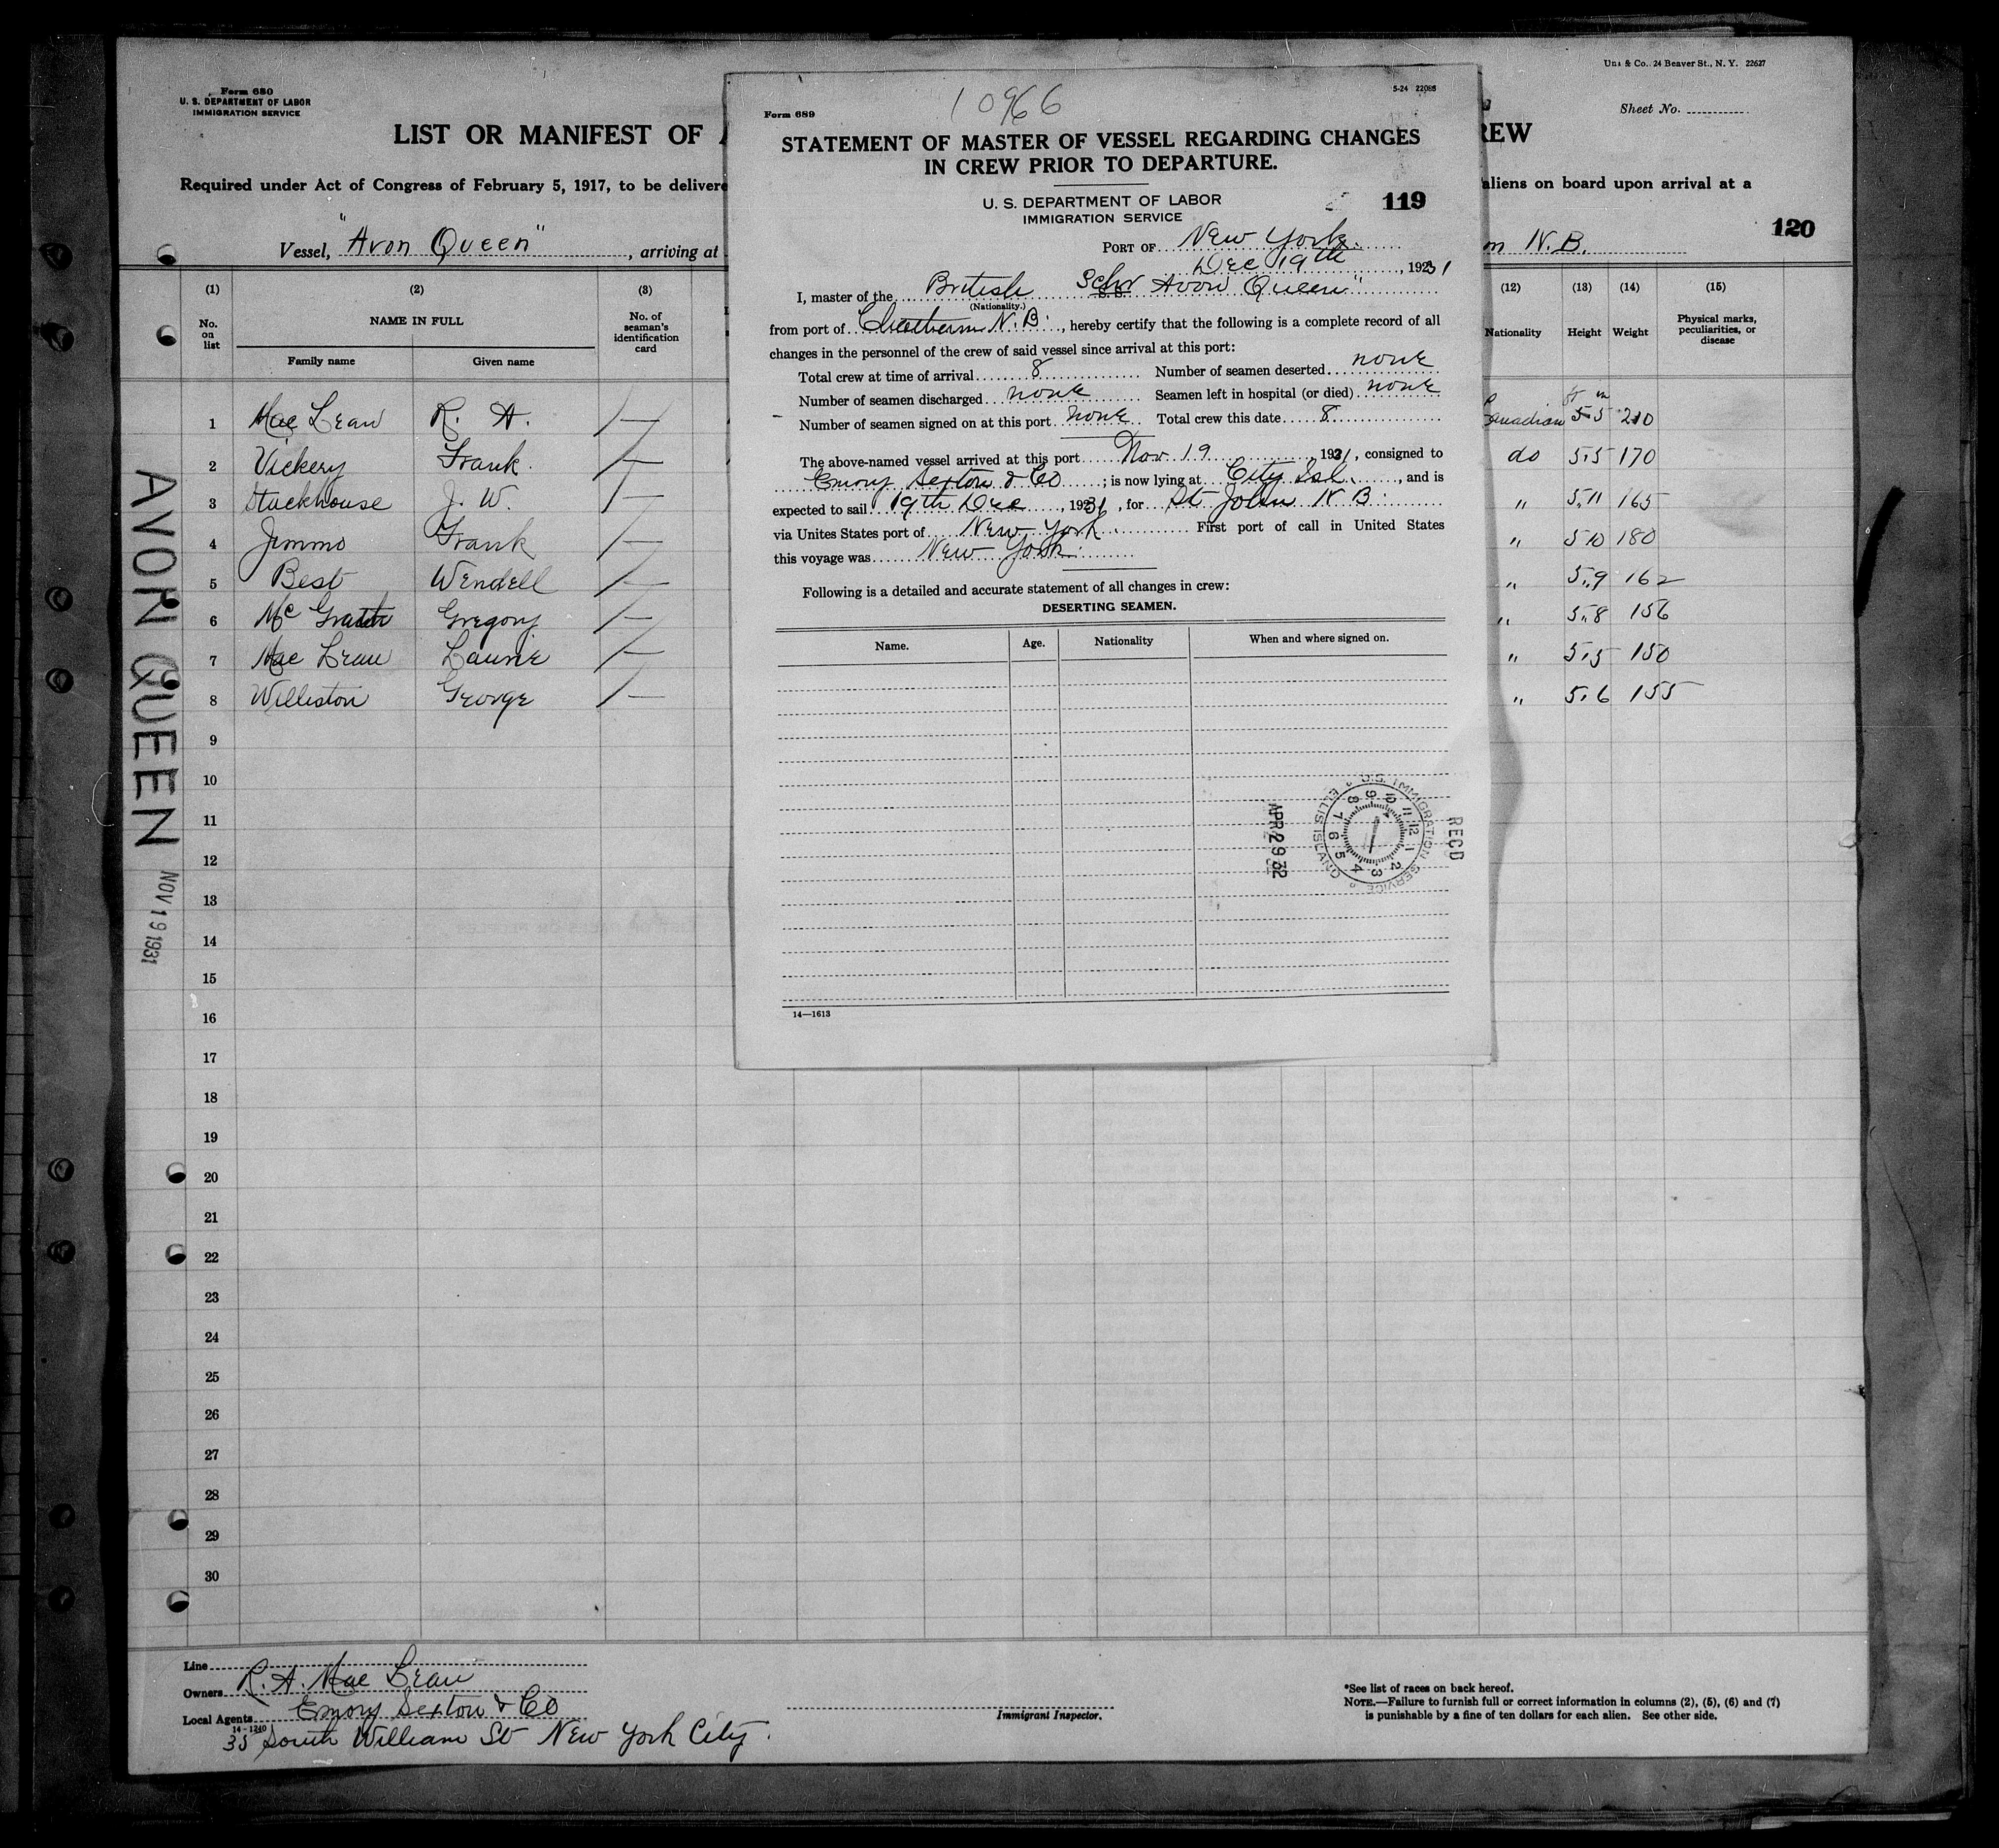 Form 680
U. S. DEPARTMENT OF LABOR
IMMIGRATION SERVICE
Co. 24 Beaver St., N. Y. 22627
Sheet No.
LIST OR MANIFEST OF
REW
Required under Act of Congress of February 5, 1917, to be delivere
aliens on board upon arrival at a
120
Vessel, "Avon Queen", arriving at
m N.B.
(1) (2) (3)
No. on list
NAME IN FULL
Family name Given name
No. of seaman's identification card
(12) (13) (14) (15)
Nationality Height Weight Physical marks, peculiarities, or disease
ft in
1 Mac Lean R. A. Canadian 5 5 210
2 Vickery Frank. do 5.5 170
3 Stackhouse J. W. " 5.11 165
4 Jimmo Frank " 5 10 180
5 Best Wendell " 5.9 162
6 Mc Gregory " 5.8 156
7 Mac Lean Laurie " 5.5 150
8 Williston George " 5.6 155
9
10
11
12
13
14
15
16
17
18
19
20
21
22
23
24
25
26
27
28
29
30
AVON QUEEN NOV 19 1931
Line
Owners R. A. Mac Lean
Local Agents Emory Sexton & Co
14-1240
35 South William St New York City.
Immigrant Inspector.
*See list of races on back hereof.
NOTE.—Failure to furnish full or correct information in columns (2), (5), (6) and (7)
is punishable by a fine of ten dollars for each alien. See other side.
10966
5-24 22085
Form 689
STATEMENT OF MASTER OF VESSEL REGARDING CHANGES
IN CREW PRIOR TO DEPARTURE.
U. S. DEPARTMENT OF LABOR
IMMIGRATION SERVICE
119
PORT OF New York.
Dec 19th, 1931
I, master of the British Schr S. S. Avon Queen"
(Nationality.)
from port of Chatham N.B., hereby certify that the following is a complete record of all
changes in the personnel of the crew of said vessel since arrival at this port:
Total crew at time of arrival 8 Number of seamen deserted none
Number of seamen discharged none Seamen left in hospital (or died) none
Number of seamen signed on at this port none Total crew this date 8
The above-named vessel arrived at this port Nov 19, 1931, consigned to
Emory Sexton & Co; is now lying at City Isl., and is
expected to sail 19th Dec, 1931, for St John N B
via Unites States port of New York First port of call in United States
this voyage was New York.
Following is a detailed and accurate statement of all changes in crew:
DESERTING SEAMEN.
Name. Age. Nationality When and where signed on.
RECD
U.S. IMMIGRATION SERVICE ELLIS ISLAND
1 2 3 4 5 6 7 8 9 10 11 12
APR 29 32
14—1613